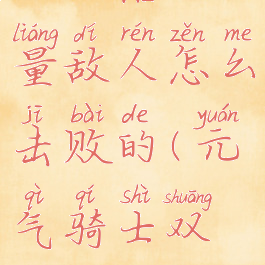 liáng dí rén zěn me
量敌人怎么
jī bài de yuán
击败的(元
qì qí shì shuāng
气骑士双